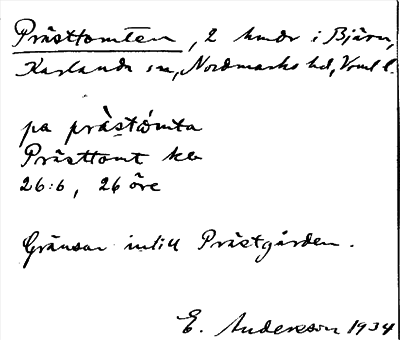 Prästtomten, 2 hmdr i Bjärn,
Karlanda sn, Nordmarks hd, Vrml l.
pa prästòmta
Prästtomt
26:6, 26 öre
Gränsar intill Prästgården.
E. Anderson 1934